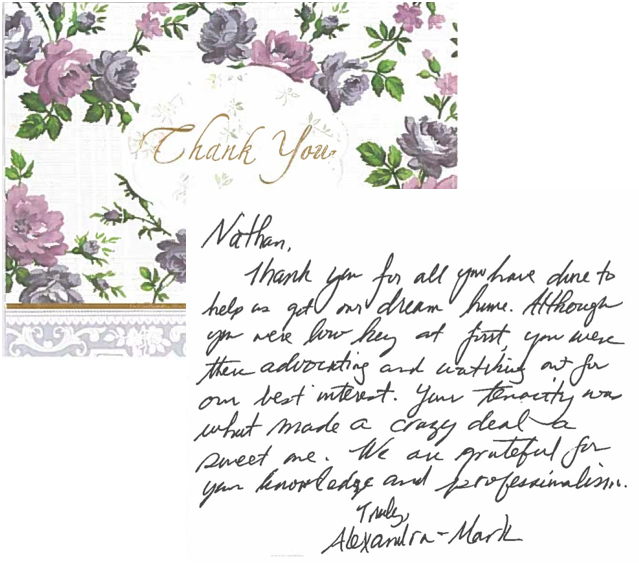 Thank You
Nathan,
Thank you for all you have done to
help us get our dream home. Although
you were low key at first, you were
there advocating and watching out for
our best interest. Your tenacity was
what made a crazy deal a
sweet one. We are grateful for
your knowledge and professionalism.
Truly,
Alexandra - Mark